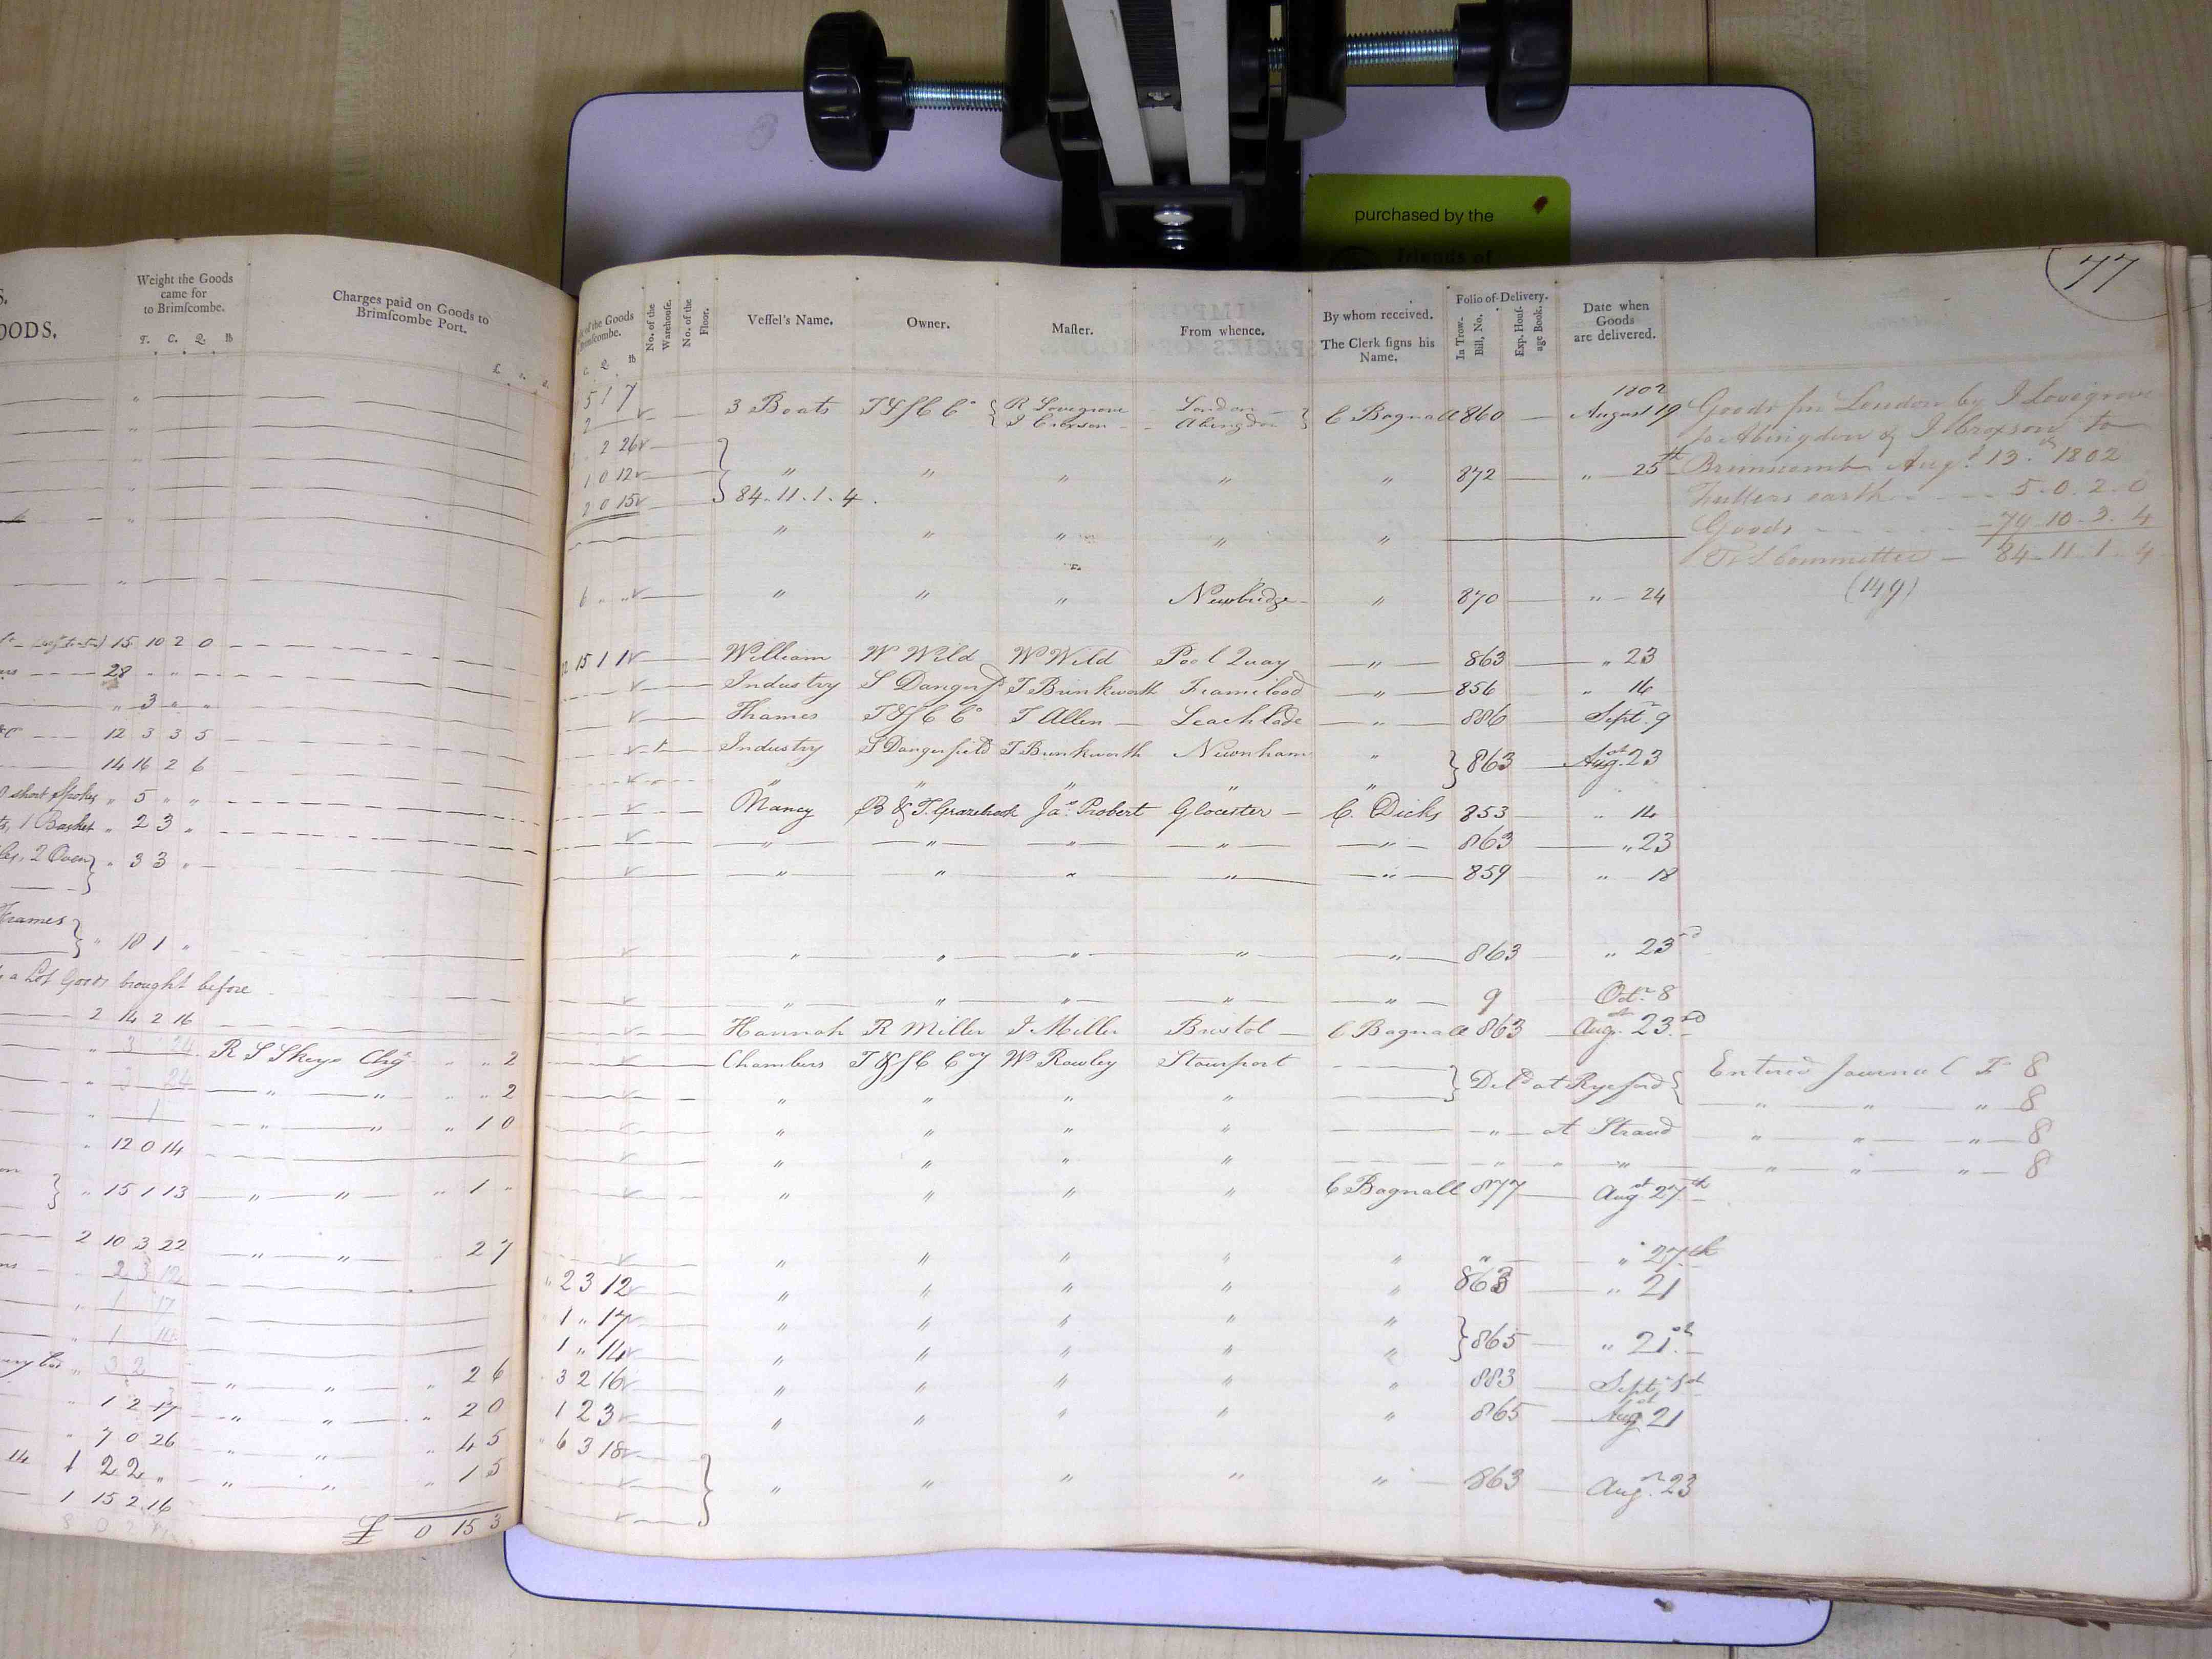 purchased by the
friends of
77
OODS.
Weight the Goods
came for
to Brimſcombe.
T. C. Q. lb
Charges paid on Goods to
Brimſcombe Port.
£ s. d.
15 10 2 0
28 " "
" 3 " "
12 3 3 5
14 16 2 6
short Spokes " 5 " "
1 Basket " 2 3 "
2 Oven } " 3 3 "
Frames } " 18 1 "
a Lot Goods brought before
2 14 2 16
" 3 24 R S Skeys Chgs " " 2
" 3 24 " " " " 2
" 1 " " " 1 0
" 12 0 14
} " 15 1 13 " " " 1 "
2 10 3 22 " " 2 7
2 3 12
" 1 17
" 1 14
" 3 2 " " " 2 6
" 1 2 17 " " " 2 0
" 7 0 26 " " " 4 5
14 1 2 2 " " " " 1 5
1 15 2 16
£ 0 15 3
of the Goods
Brimſcombe.
C. Q. lb
No. of the
Warehouſe.
No. of the
Floor.
Veſſel's Name.
Owner.
Maſter.
From whence.
By whom received.
The Clerk ſigns his
Name.
Folio of Delivery.
In Trow-
Bill, No.
Exp. Houſ-
age Book.
Date when
Goods
are delivered.
5 1 7 3 Boats T&SC Co { R Lovegrove London } C Bagnall 860 1802 August 19
2 J Croxson Abingdon
2 26
1 0 12 } " " " " " 872 " 25th
2 0 15 84.11.1.4.
" " " " "
6 " " " " " Newbridge " 870 " 24
15 1 1 William W Wild W Wild Pool Quay " 863 " 23
Industry S Dangerf T Brinkworth Framilood " 856 " 16
Thames T&SC Co T Allen Leachlade " 886 Septr 9
Industry S Dangerfield T Brinkworth Newnham " } 863 Augst 23
" " " " "
Nancy B & T. Grazebrook Jas Probert Glocester C. Dicks 853 " 14
" " " " " 863 " 23
" " " " " 859 " 18
" " " " " 863 " 23rd
" " " " " 9 Octr 8
Hannah R Miller J Miller Bristol C Bagnall 863 Augst 23rd
Chambers T&SC Coy W Rowley Stourport } Deld at Ryeford {
" " " "
" " " " " at Stroud
" " " " " " "
" " " " C Bagnall 877 Augst 27th
" " " " " " " 27th
" 2 3 12 " " " " " 863 " 21
1 " 17 " " " " " } 865 " 21st
1 " 14 " " " " "
3 2 16 " " " " " 883 Septr 1st
1 2 3 " " " " " 865 Augst 21
" 6 3 18
} " " " " " 863 Augst 23
Goods fm London by J Lovegrove
to Abingdon & J Croxson to
Brimscomb Augt 13th 1802
Fullers earth 5.0.2.0
Goods 79.10.3.4
T&S Committee 84.11.1.4
(149)
Entered Journal F 8
" " " 8
" " " 8
" " " 8